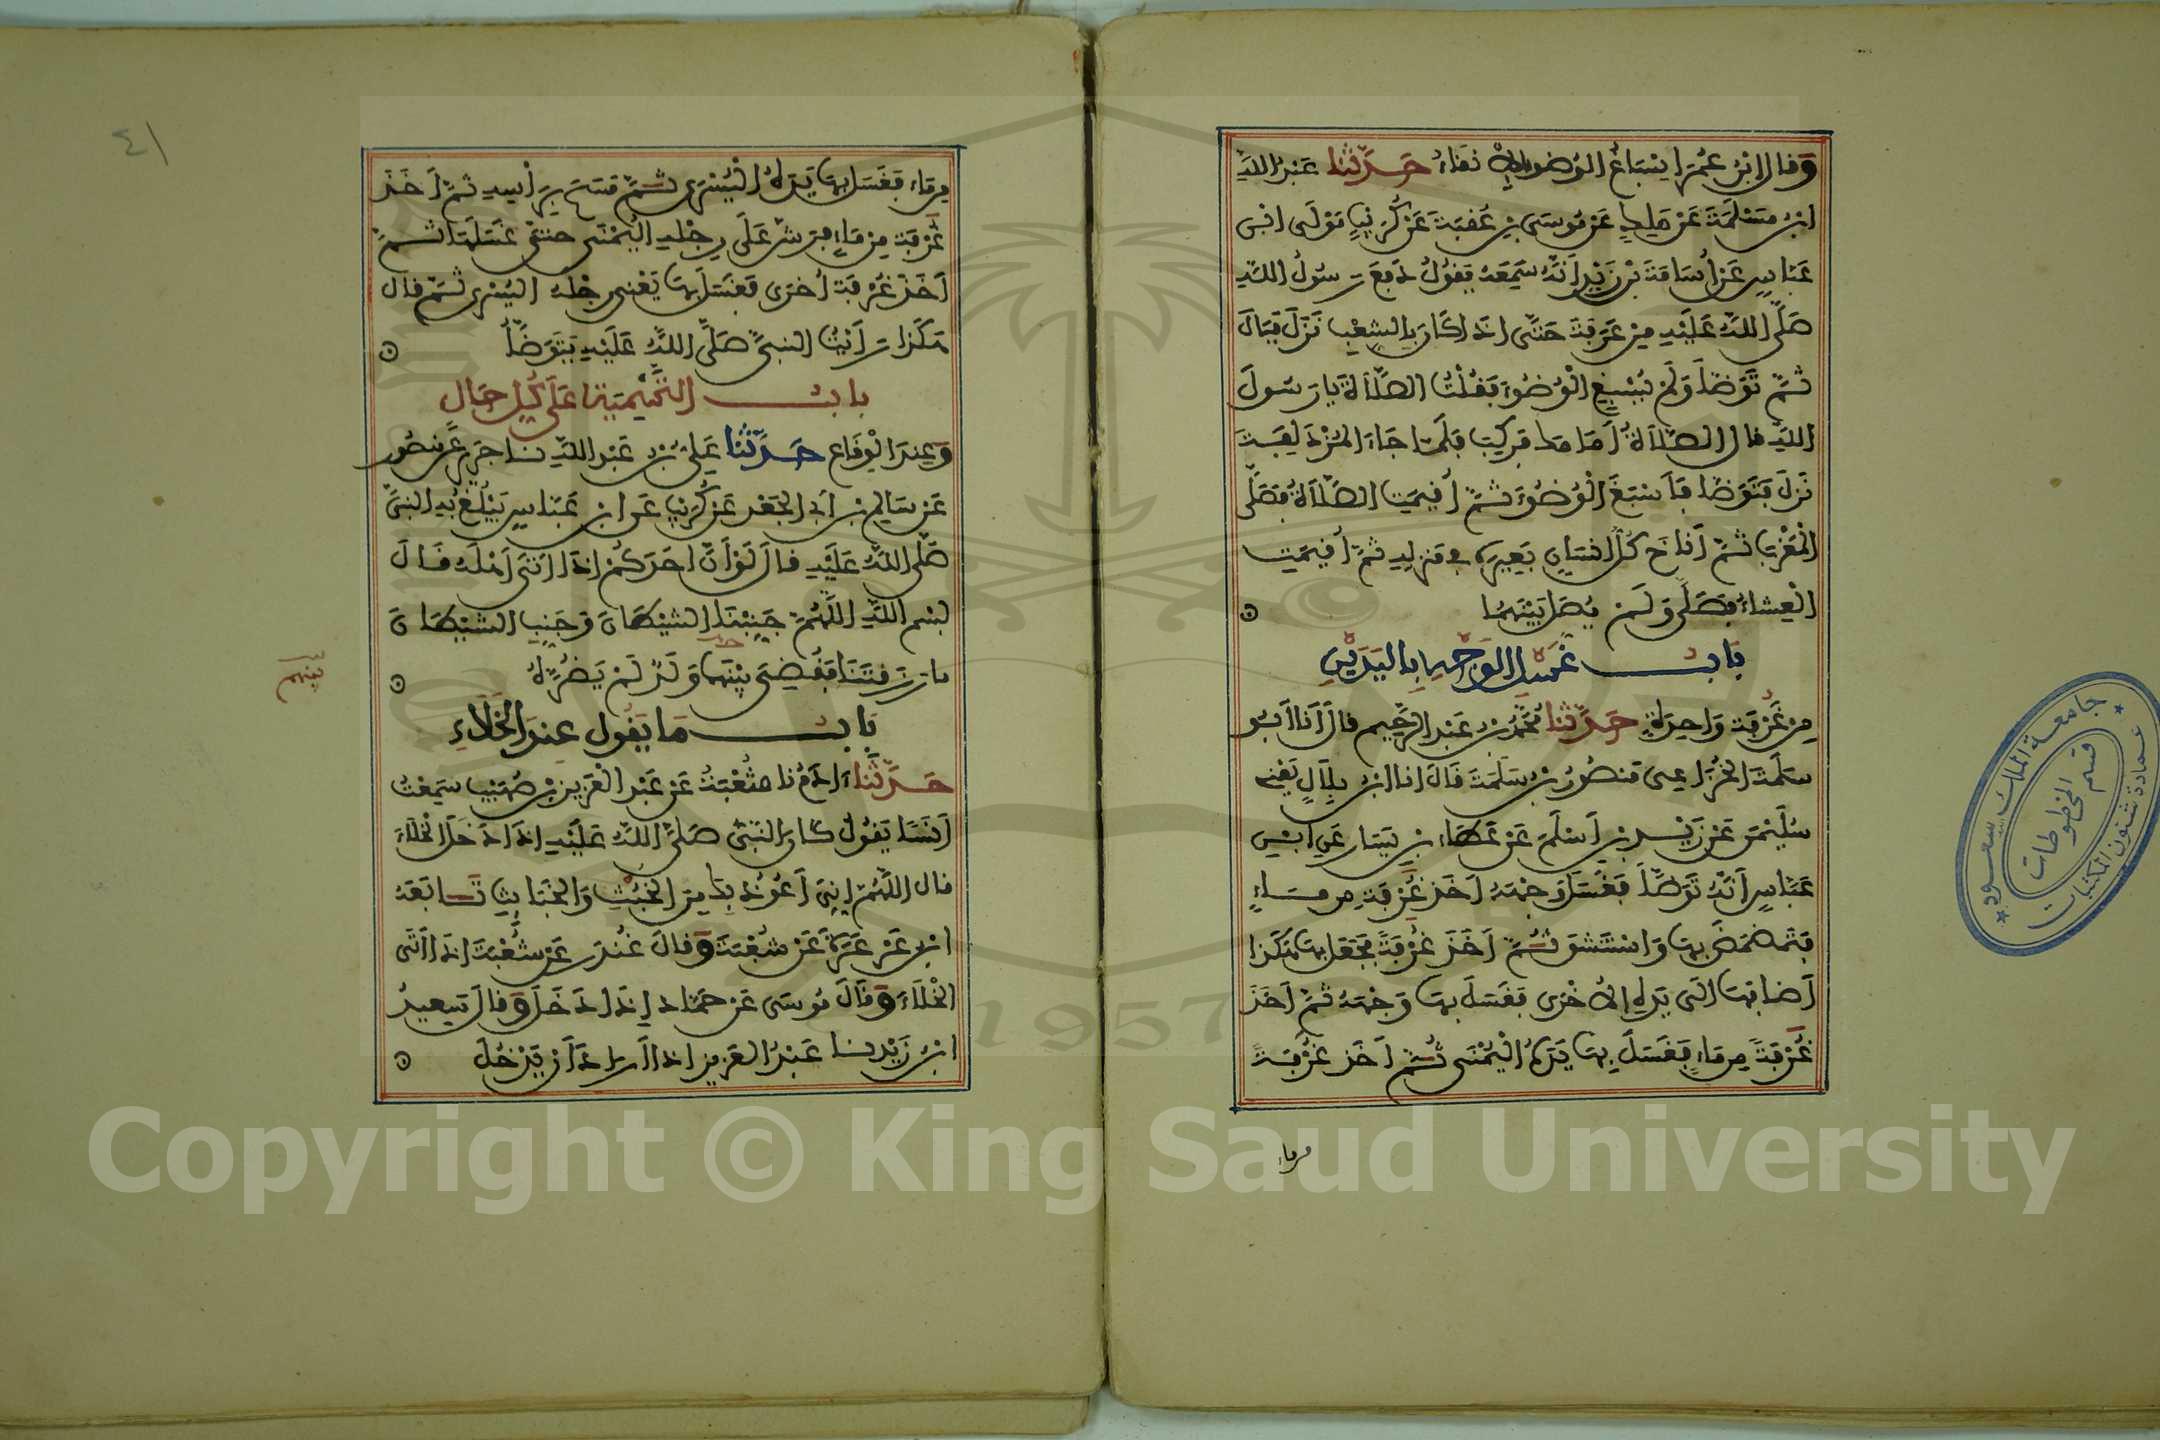 وقال ابن عمر إسباغ الوضوء الإنقاء حدثنا عبد الله
ابن مسلمة عن ملك عن موسى بن عقبة عن كريب مولى ابن
عباس عن أسامة بن زيد أنه سمعه يقول دفع رسول الله
صلى الله عليه من عرفة حتى اذا كان بالشعب نزل فبال
ثم توضأ ولم يسبغ الوضوء فقلت الصلاة يا رسول
الله قال الصلاة أمامك فركب فلما جاء المزدلفة
نزل فتوضأ فأسبغ الوضوء ثم أقيمت الصلاة فصلى
المغرب ثم أناخ كل انسان بعيره في منزله ثم أقيمت
العشاء فصلى ولم يصل بينهما
باب غسل الوجه باليدين
من غرفة واحدة حدثنا محمد بن عبد الرحيم قال أنا أبو
سلمة الخزاعي منصور بن سلمة قال انا ابن بلال يعني
سليمن عن زيد بن أسلم عن عطاء بن يسار عن ابن
عباس أنه توضأ فغسل وجهه أخذ غرفة من ماء
فتمضمض بها واستنشق ثم أخذ غرفة فجعل بها هكذا
أضافها الى يده الأخرى فغسل بها وجهه ثم أخذ
غرفة من ماء فغسل بها يده اليمنى ثم أخذ غرفة
من ماء
٤١
من ماء فغسل بها يده اليسرى ثم مسح برأسه ثم أخذ
غرفة من ماء فرش على رجله اليمنى حتى غسلها ثم
أخذ غرفة أخرى فغسل بها يعني رجله اليسرى ثم قال
هكذا رأيت النبي صلى الله عليه يتوضأ
باب التسمية على كل حال
وعند الوقاع حدثنا علي بن عبد الله نا جرير عن منصور
عن سالم بن أبي الجعد عن كريب عن ابن عباس يبلغ به النبي
صلى الله عليه قال لو أن احدكم اذا اتى أهله قال
بسم الله اللهم جنبنا الشيطان وجنب الشيطان
ما رزقتنا فقضي بينهما ولد لم يضره
بينهم
باب ما يقول عند الخلاء
حدثنا ءادم نا شعبة عن عبد العزيز بن صهيب سمعت
أنسا يقول كان النبي صلى الله عليه اذا دخل الخلاء
قال اللهم إني أعوذ بك من الخبث والخبائث تابعه
ابن عرعرة عن شعبة وقال غندر عن شعبة اذا اتى
الخلاء وقال موسى عن حماد إذا دخل وقال سعيد
ابن زيد نا عبد العزيز اذا أراد أن يدخل
جامعة الملك سعود
عمادة شئون المكتبات
قسم المخطوطات
1957
Copyright © King Saud University